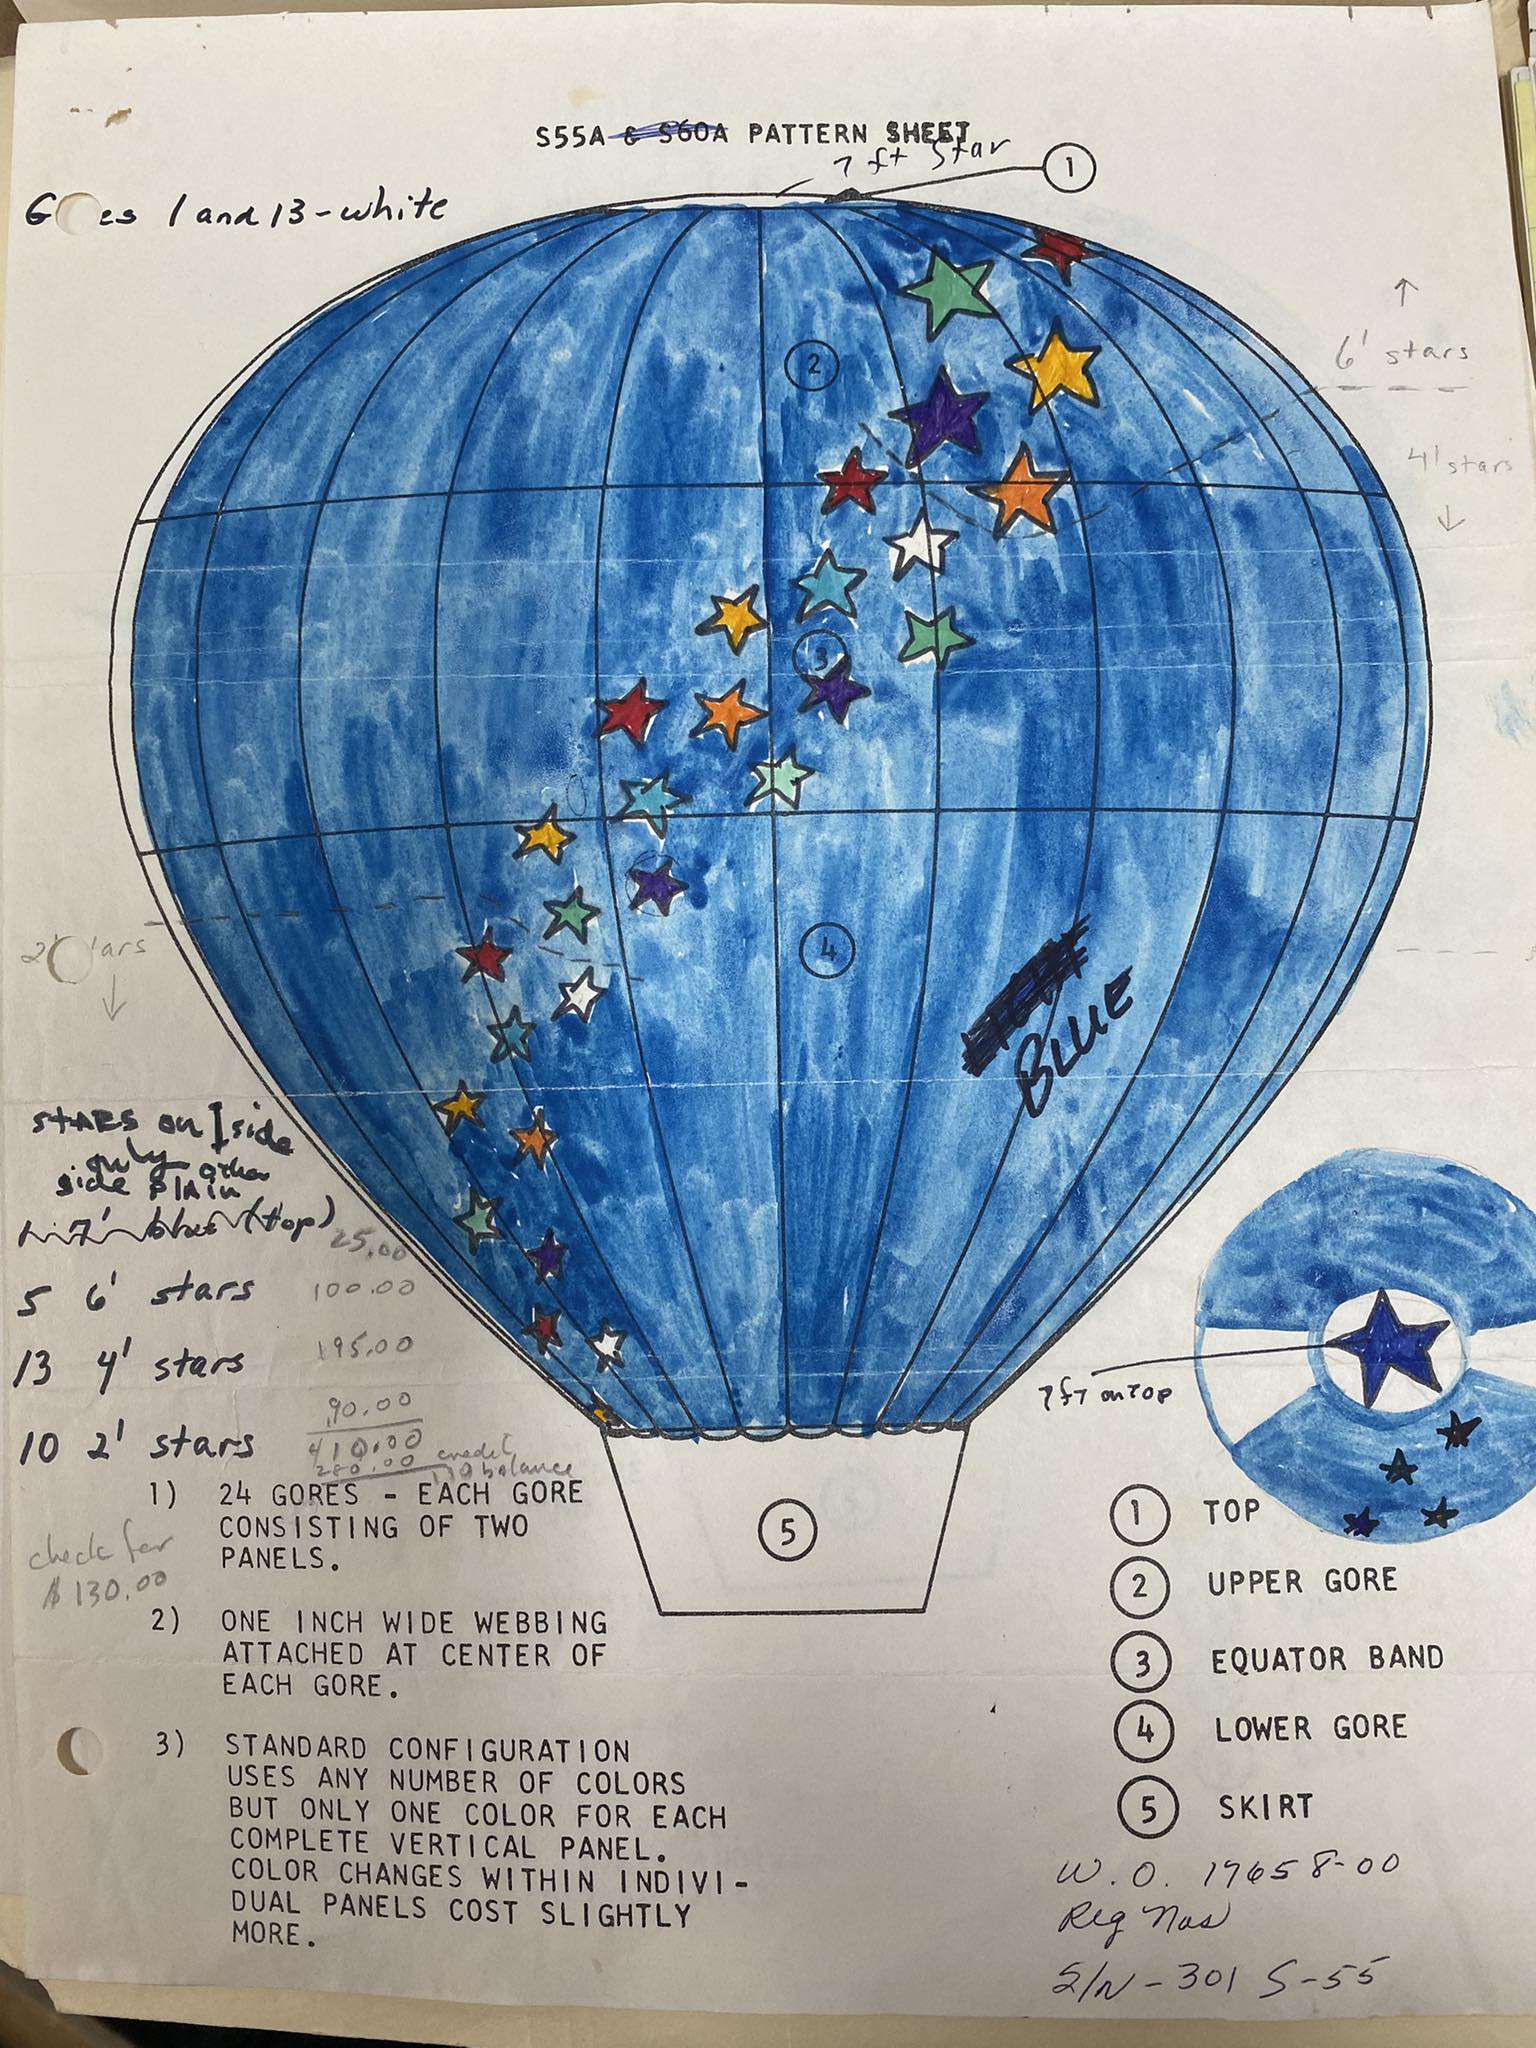 S55A & S60A PATTERN SHEET
7 ft Star
1
G es 1 and 13 - white
2
6' stars
4' stars
3
4
BLUE
2' tars
STARS on 1 side
only other
side PLAIN
1 - 7' blue (top) 25.00
5 6' stars 100.00
13 4' stars 195.00
10 2' stars 90.00
410.00
280.00 credit
balance
check for
$ 130.00
7 FT on TOP
5
1) 24 GORES - EACH GORE
CONSISTING OF TWO
PANELS.
2) ONE INCH WIDE WEBBING
ATTACHED AT CENTER OF
EACH GORE.
3) STANDARD CONFIGURATION
USES ANY NUMBER OF COLORS
BUT ONLY ONE COLOR FOR EACH
COMPLETE VERTICAL PANEL.
COLOR CHANGES WITHIN INDIVI-
DUAL PANELS COST SLIGHTLY
MORE.
1 TOP
2 UPPER GORE
3 EQUATOR BAND
4 LOWER GORE
5 SKIRT
W.O. 17658-00
Reg Nos
S/N - 301 S-55